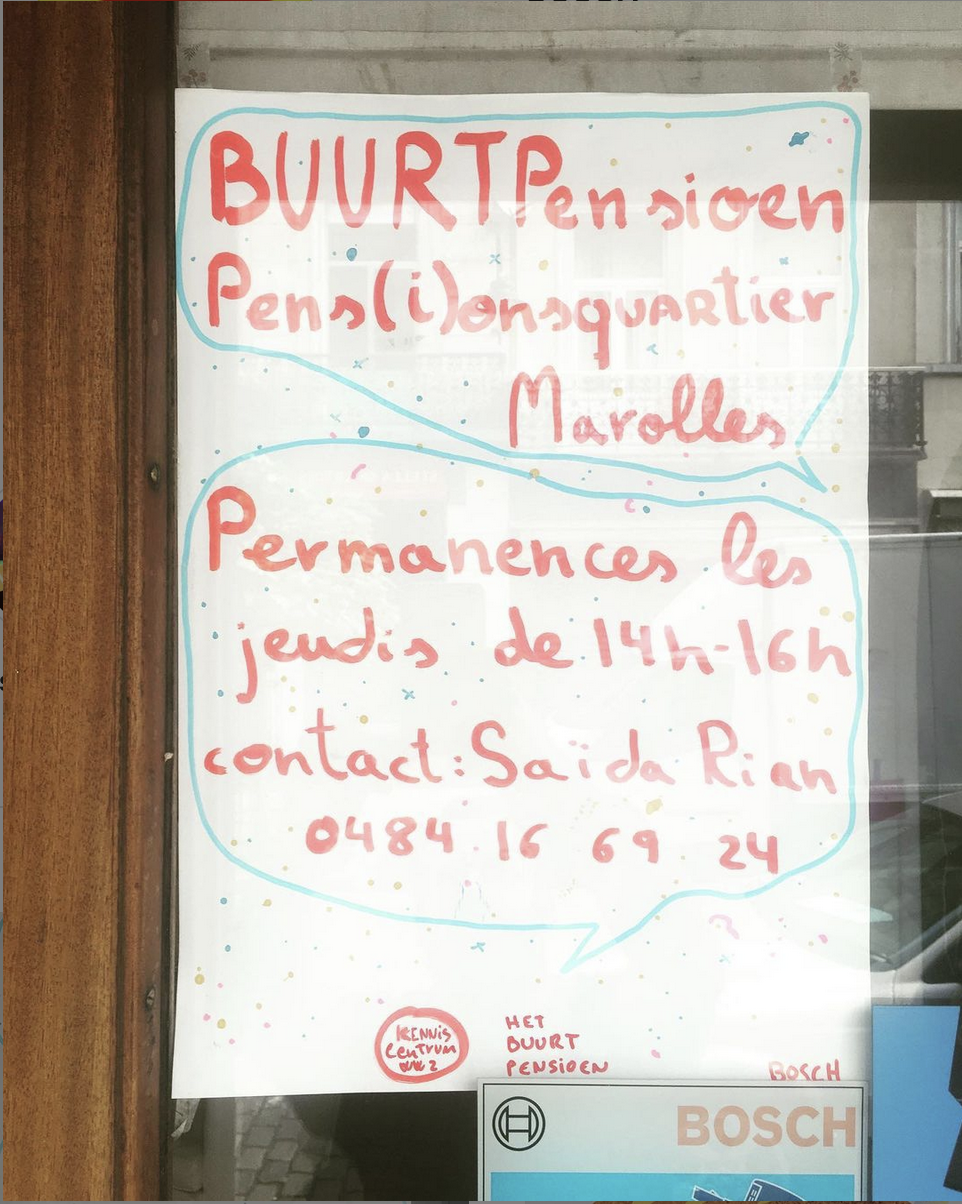 BUURTPensioen
Pens(i)onsquARTier
Marolles
Permanences les
jeudis de 14h-16h
contact: Saïda Rian
0484 16 69 24
KENNis
CenTrum
WWZ
HET
BUURT
PENSiOEN
BOSCH
BOSCH